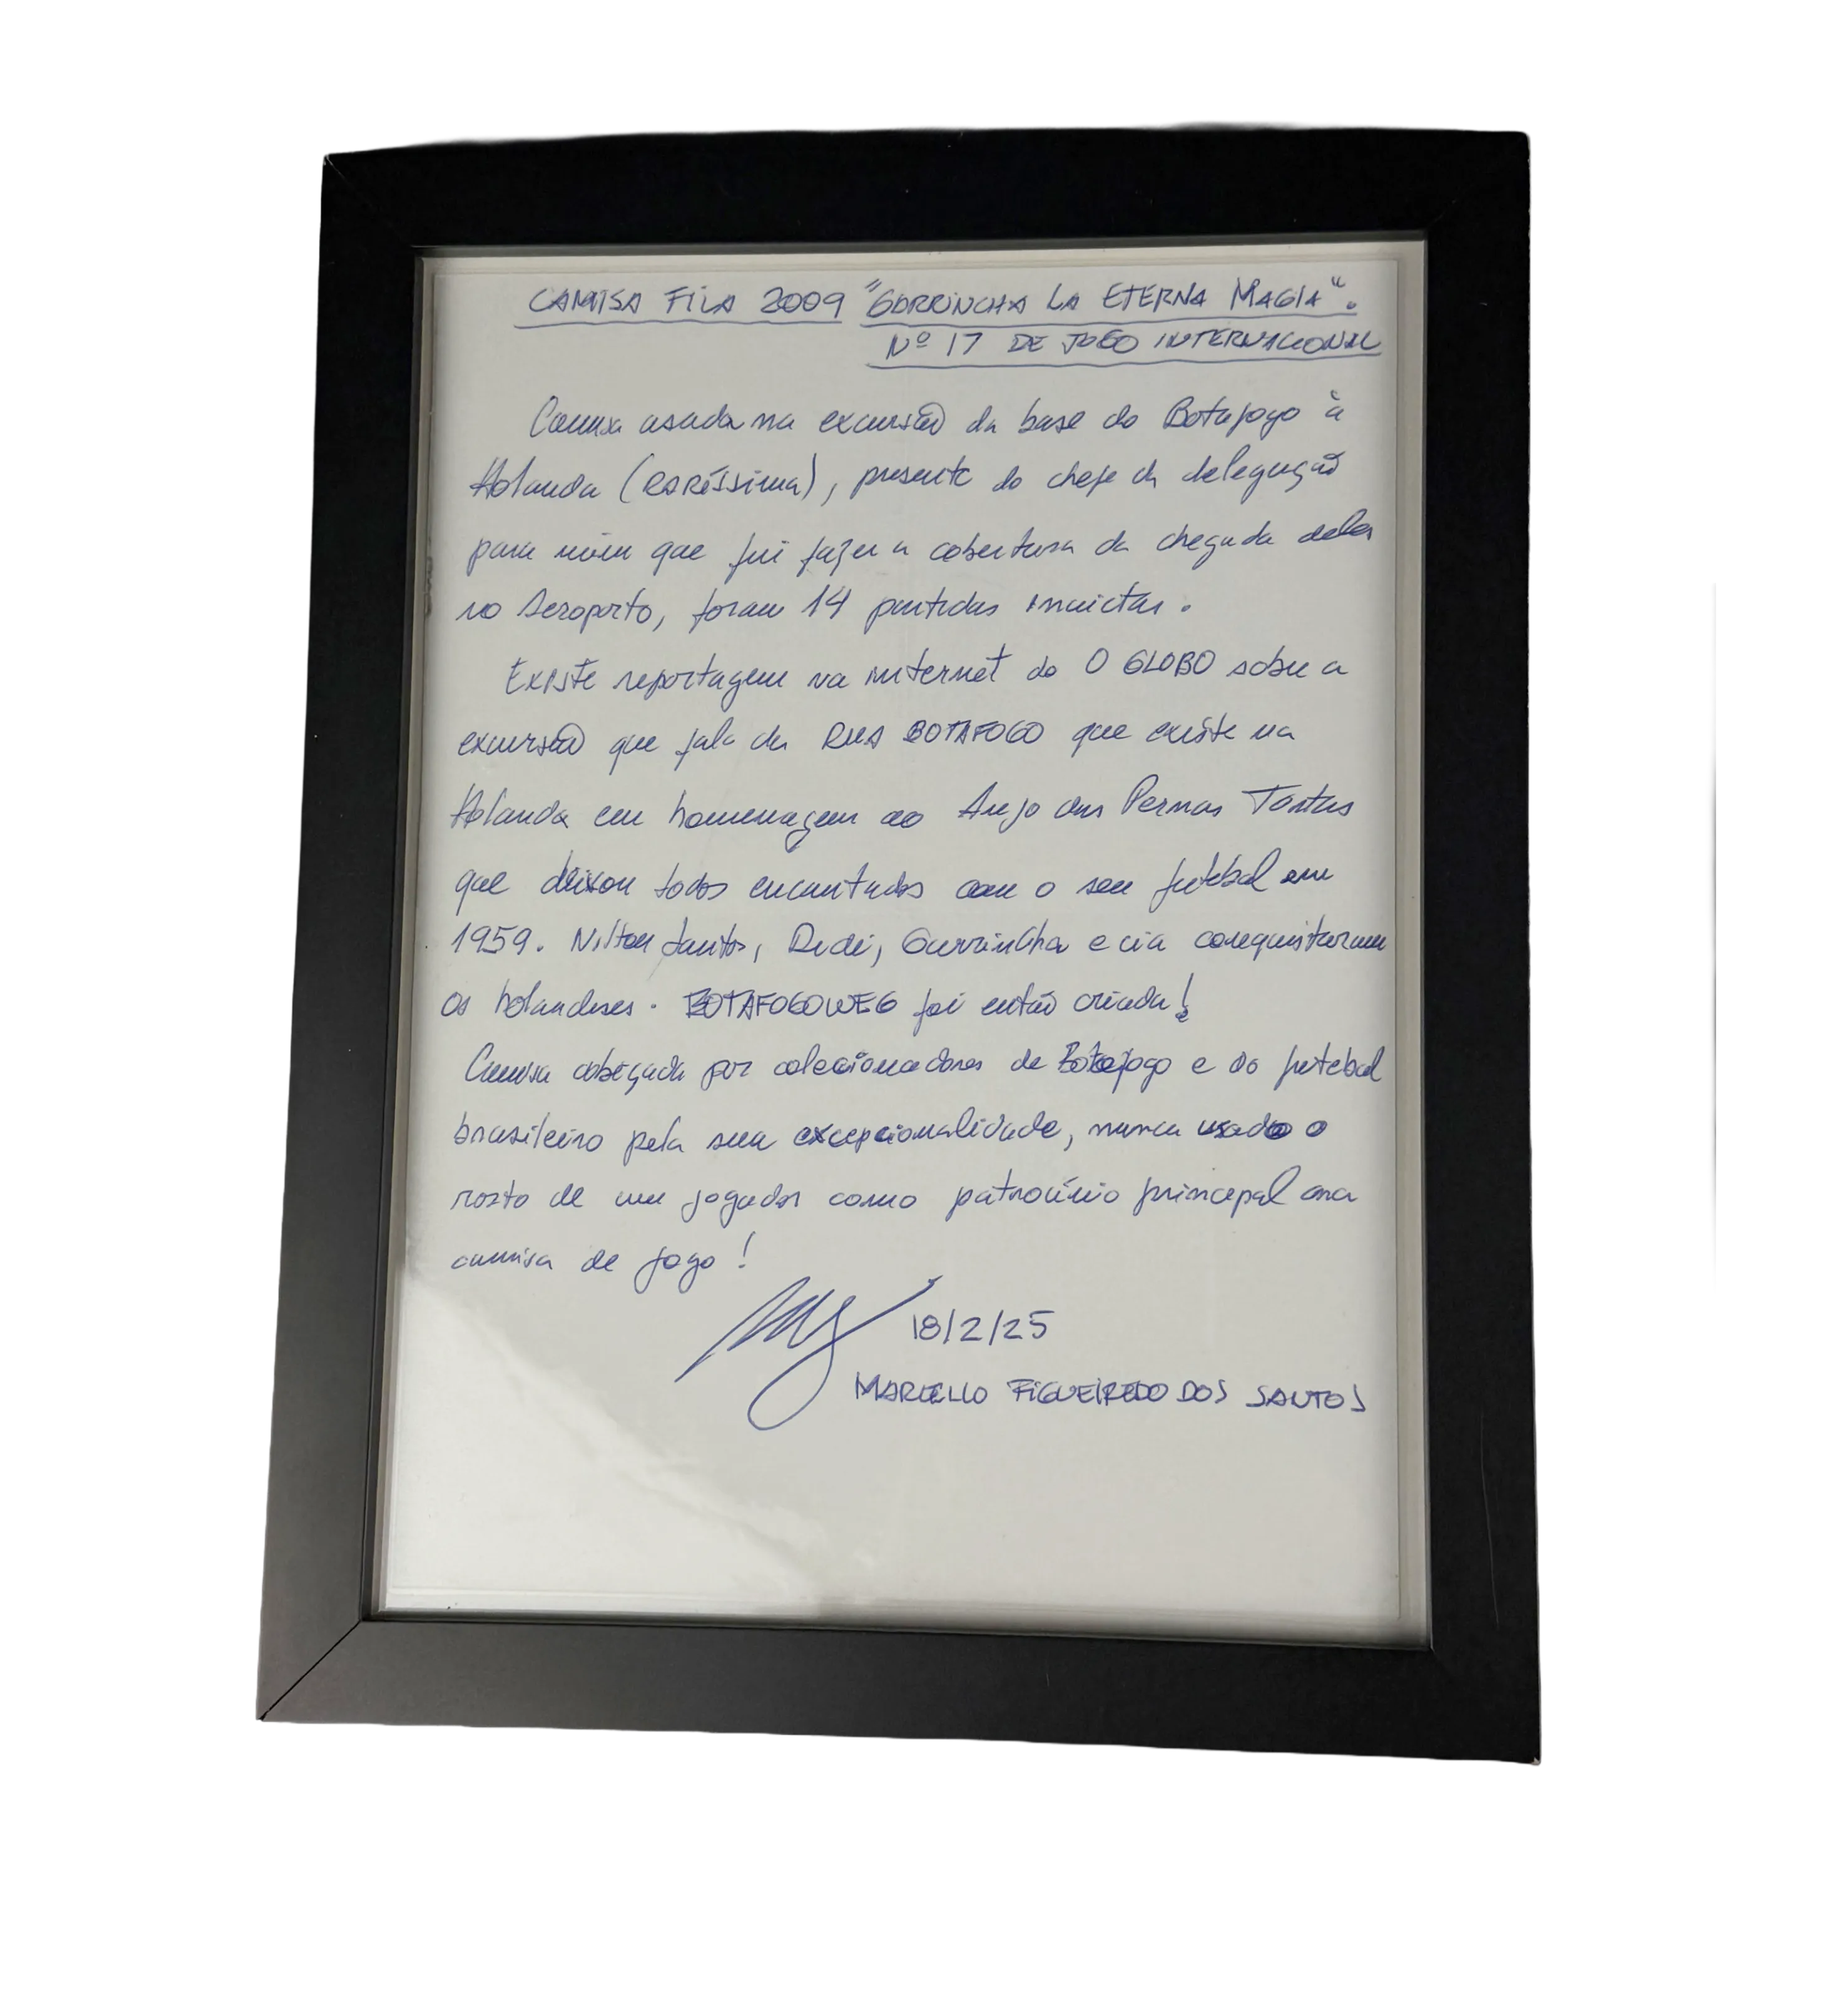 CAMISA FILA 2009 "GARRINCHA LA ETERNA MAGIA".
Nº 17 DE JOGO INTERNACIONAL
Camisa usada na excursão da base do Botafogo à
Holanda (RARÍSSIMA), presente do chefe da delegação
para mim que fui fazer a cobertura da chegada deles
no Aeroporto, foram 14 partidas invictas.
Existe reportagem na internet do O GLOBO sobre a
excursão que fala da RUA BOTAFOGO que existe na
Holanda em homenagem ao Anjo das Pernas Tortas
que deixou todos encantados com o seu futebol em
1959. Nilton Santos, Didi, Garrincha e cia conquistaram
os holandeses. BOTAFOGOWEG foi então criada!
Camisa cobiçada por colecionadores de Botafogo e do futebol
brasileiro pela sua excepcionalidade, nunca usado o
rosto de um jogador como patrocínio principal na
camisa de jogo!
18/2/25
MARCELLO FIGUEIREDO DOS SANTOS